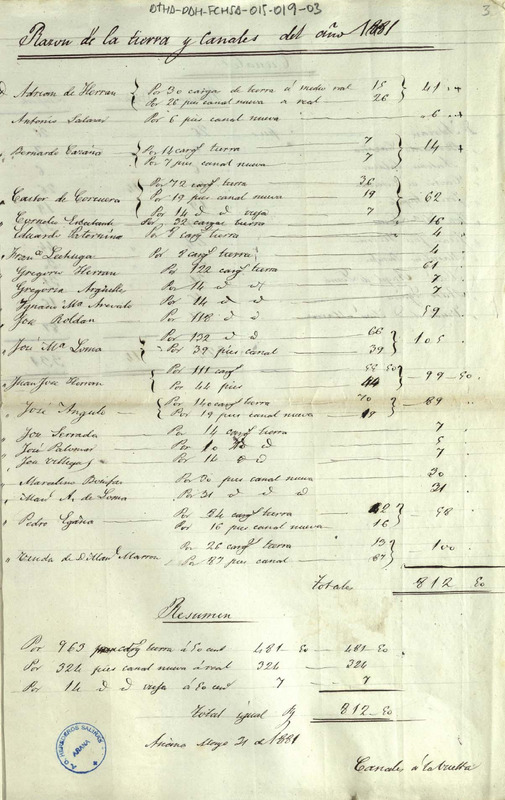 DTHA-DAH-FCHSA-015-019-03
3
Razon de la tierra y Canales del año 1881
Adrian de Herran Por 30 carga de tierra á medio real 15 41
Por 26 pies canal nueva a real 26
Antonio Salazar Por 6 pies canal nueva 6
Bernardo Por 14 carg tierra 7 14
Por 7 pies canal nueva 7
Por 72 carg tierra 36
Castor de Corcuera Por 19 pies canal nueva 19 62
Por 14 d d vieja 7
Cornelio Por 32 cargas tierra 16
Eduardo Paternina Por 8 carg tierra 4
Franca Lechuga Por 8 carg tierra 4
Gregorio Herran Por 122 carg tierra 61
Gregoria Argüelles Por 14 d d 7
Ignacio Ma Arevalo Por 14 d d 7
Jose Roldan Por 118 d d 59
José Ma Loma Por 132 d d 66 105
Por 39 pies canal 39
Juan Jose Herran Por 111 carg 55 50 99 50
Por 44 pies 44
Jose Angulo Por 140 carg tierra 70 89
Por 19 pies canal nueva 19
Jose Serrada Por 14 carg tierra 7
José Palomar Por 10 d d 5
Jose Villegas Por 14 d d 7
Marcelino Bonifaz Por 30 pies canal nueva 30
Manl A. de Loma Por 31 d d d 31
Pedro Egaña Por 84 carg tierra 42 58
Por 16 pies canal nueva 16
Viuda de D. Manl Marron Por 26 carg tierra 13 100
Por 87 pies canal 87
Totales 812 50
Resumen
Por 963 carg tierra á 50 cent 481 50 481 50
Por 324 pies canal nueva á real 324 324
Por 14 d d vieja á 50 cent 7 7
Total igual 812 50
Anana Marzo 31 de 1881
Canales á la vuelta
HEREDEROS SALINAS
AÑANA